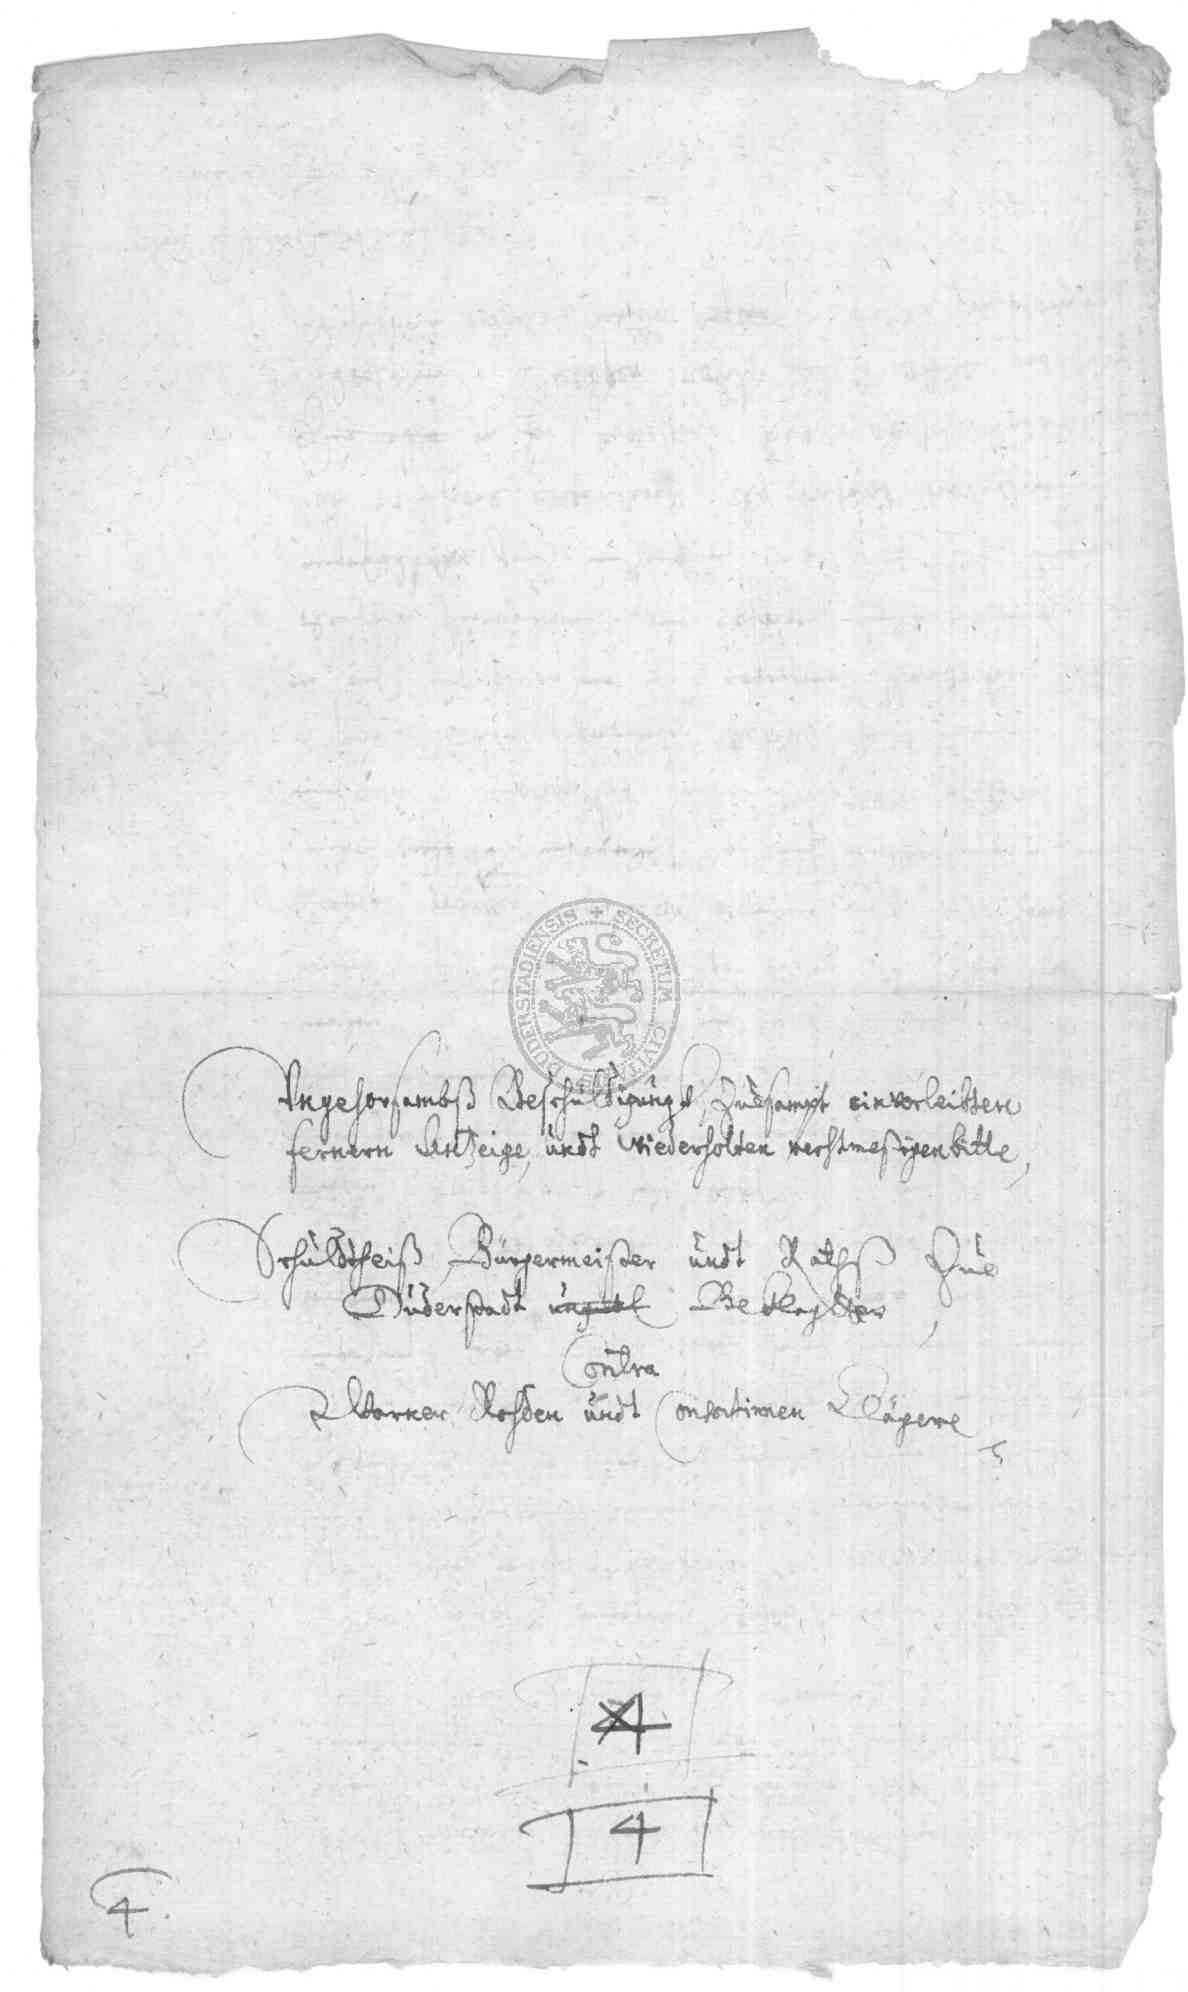 SECRETUM CIVIT DUDERSTADIENSIS
Ungehorsambß Beschuldigung, zuesampt einverleibten
fernern Anzeige, undt wiederholten rechtmeßigen bitte,
Schuldtheiß, Bürgermeister undt Rathß Zue
Duderstadt Beklagter,
Contra
Warner Rohden undt Consortinnen Klägere
4
4
4.